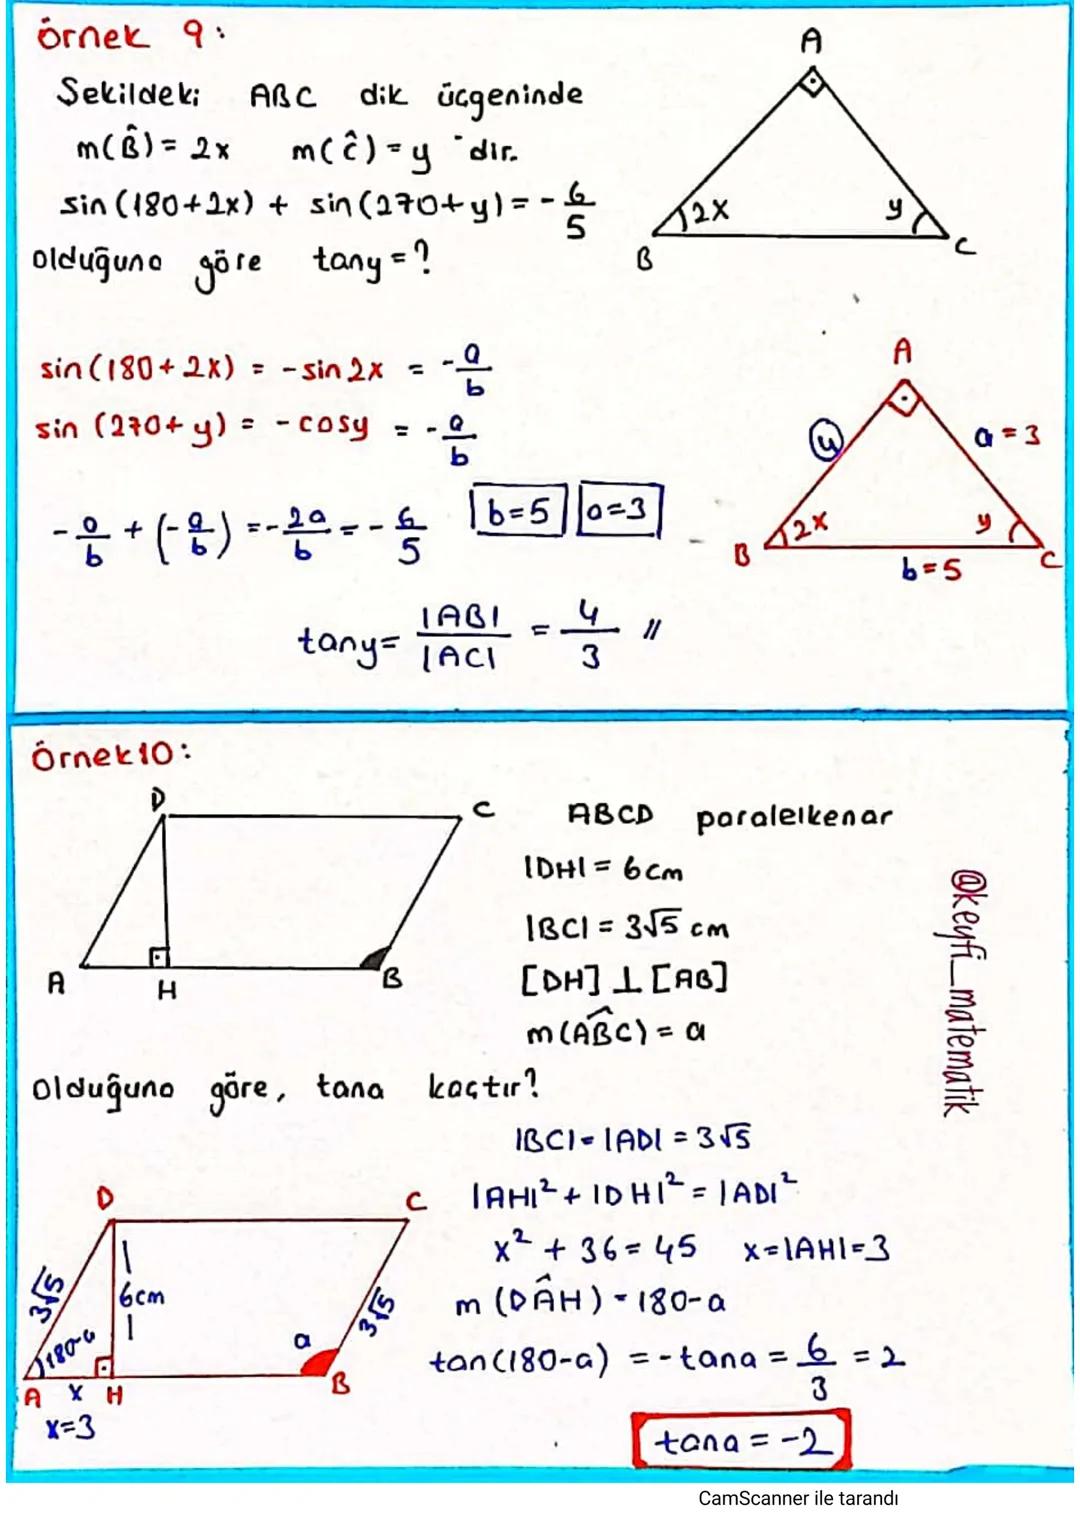 örnek 9:
Şekildeki ABC dik üçgeninde
m(B̂) = 2x m(ĉ) = y 'dir.
sin(180+2x) + sin(270+y) = -6/5
olduğuna göre tany = ?
A
2x
y
B
C
sin(180+2x) = -sin2x = -a/b
sin (270+y) = -cosy = -a/b
-a/b + (-a/b) = -2a/b = -6/5 b=5 a=3
A
4
a=3
2x
y
B
C
b=5
tany = |AB|/|AC| = 4/3 //
Örnek10:
D
C
A
H
B
ABCD paralelkenar
|DH| = 6cm
|BC| = 3√5 cm
[DH] ⊥ [AB]
m(AB̂C) = a
Olduğuna göre, tana kaçtır?
|BC| = |AD| = 3√5
|AH|² + |DH|² = |AD|²
x² + 36 = 45 x=|AH|=3
m (DÂH) = 180-a
tan(180-a) = -tana = 6/3 = 2
tana = -2
D
C
3√5
6cm
3√5
180-a
a
A x H
B
x=3
@keyfi_matematik
CamScanner ile tarandı